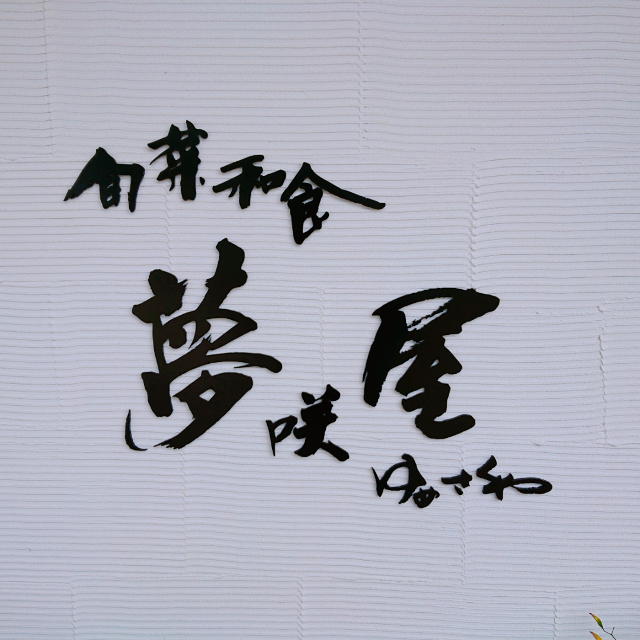 旬菜和食
夢咲屋
ゆめさくや